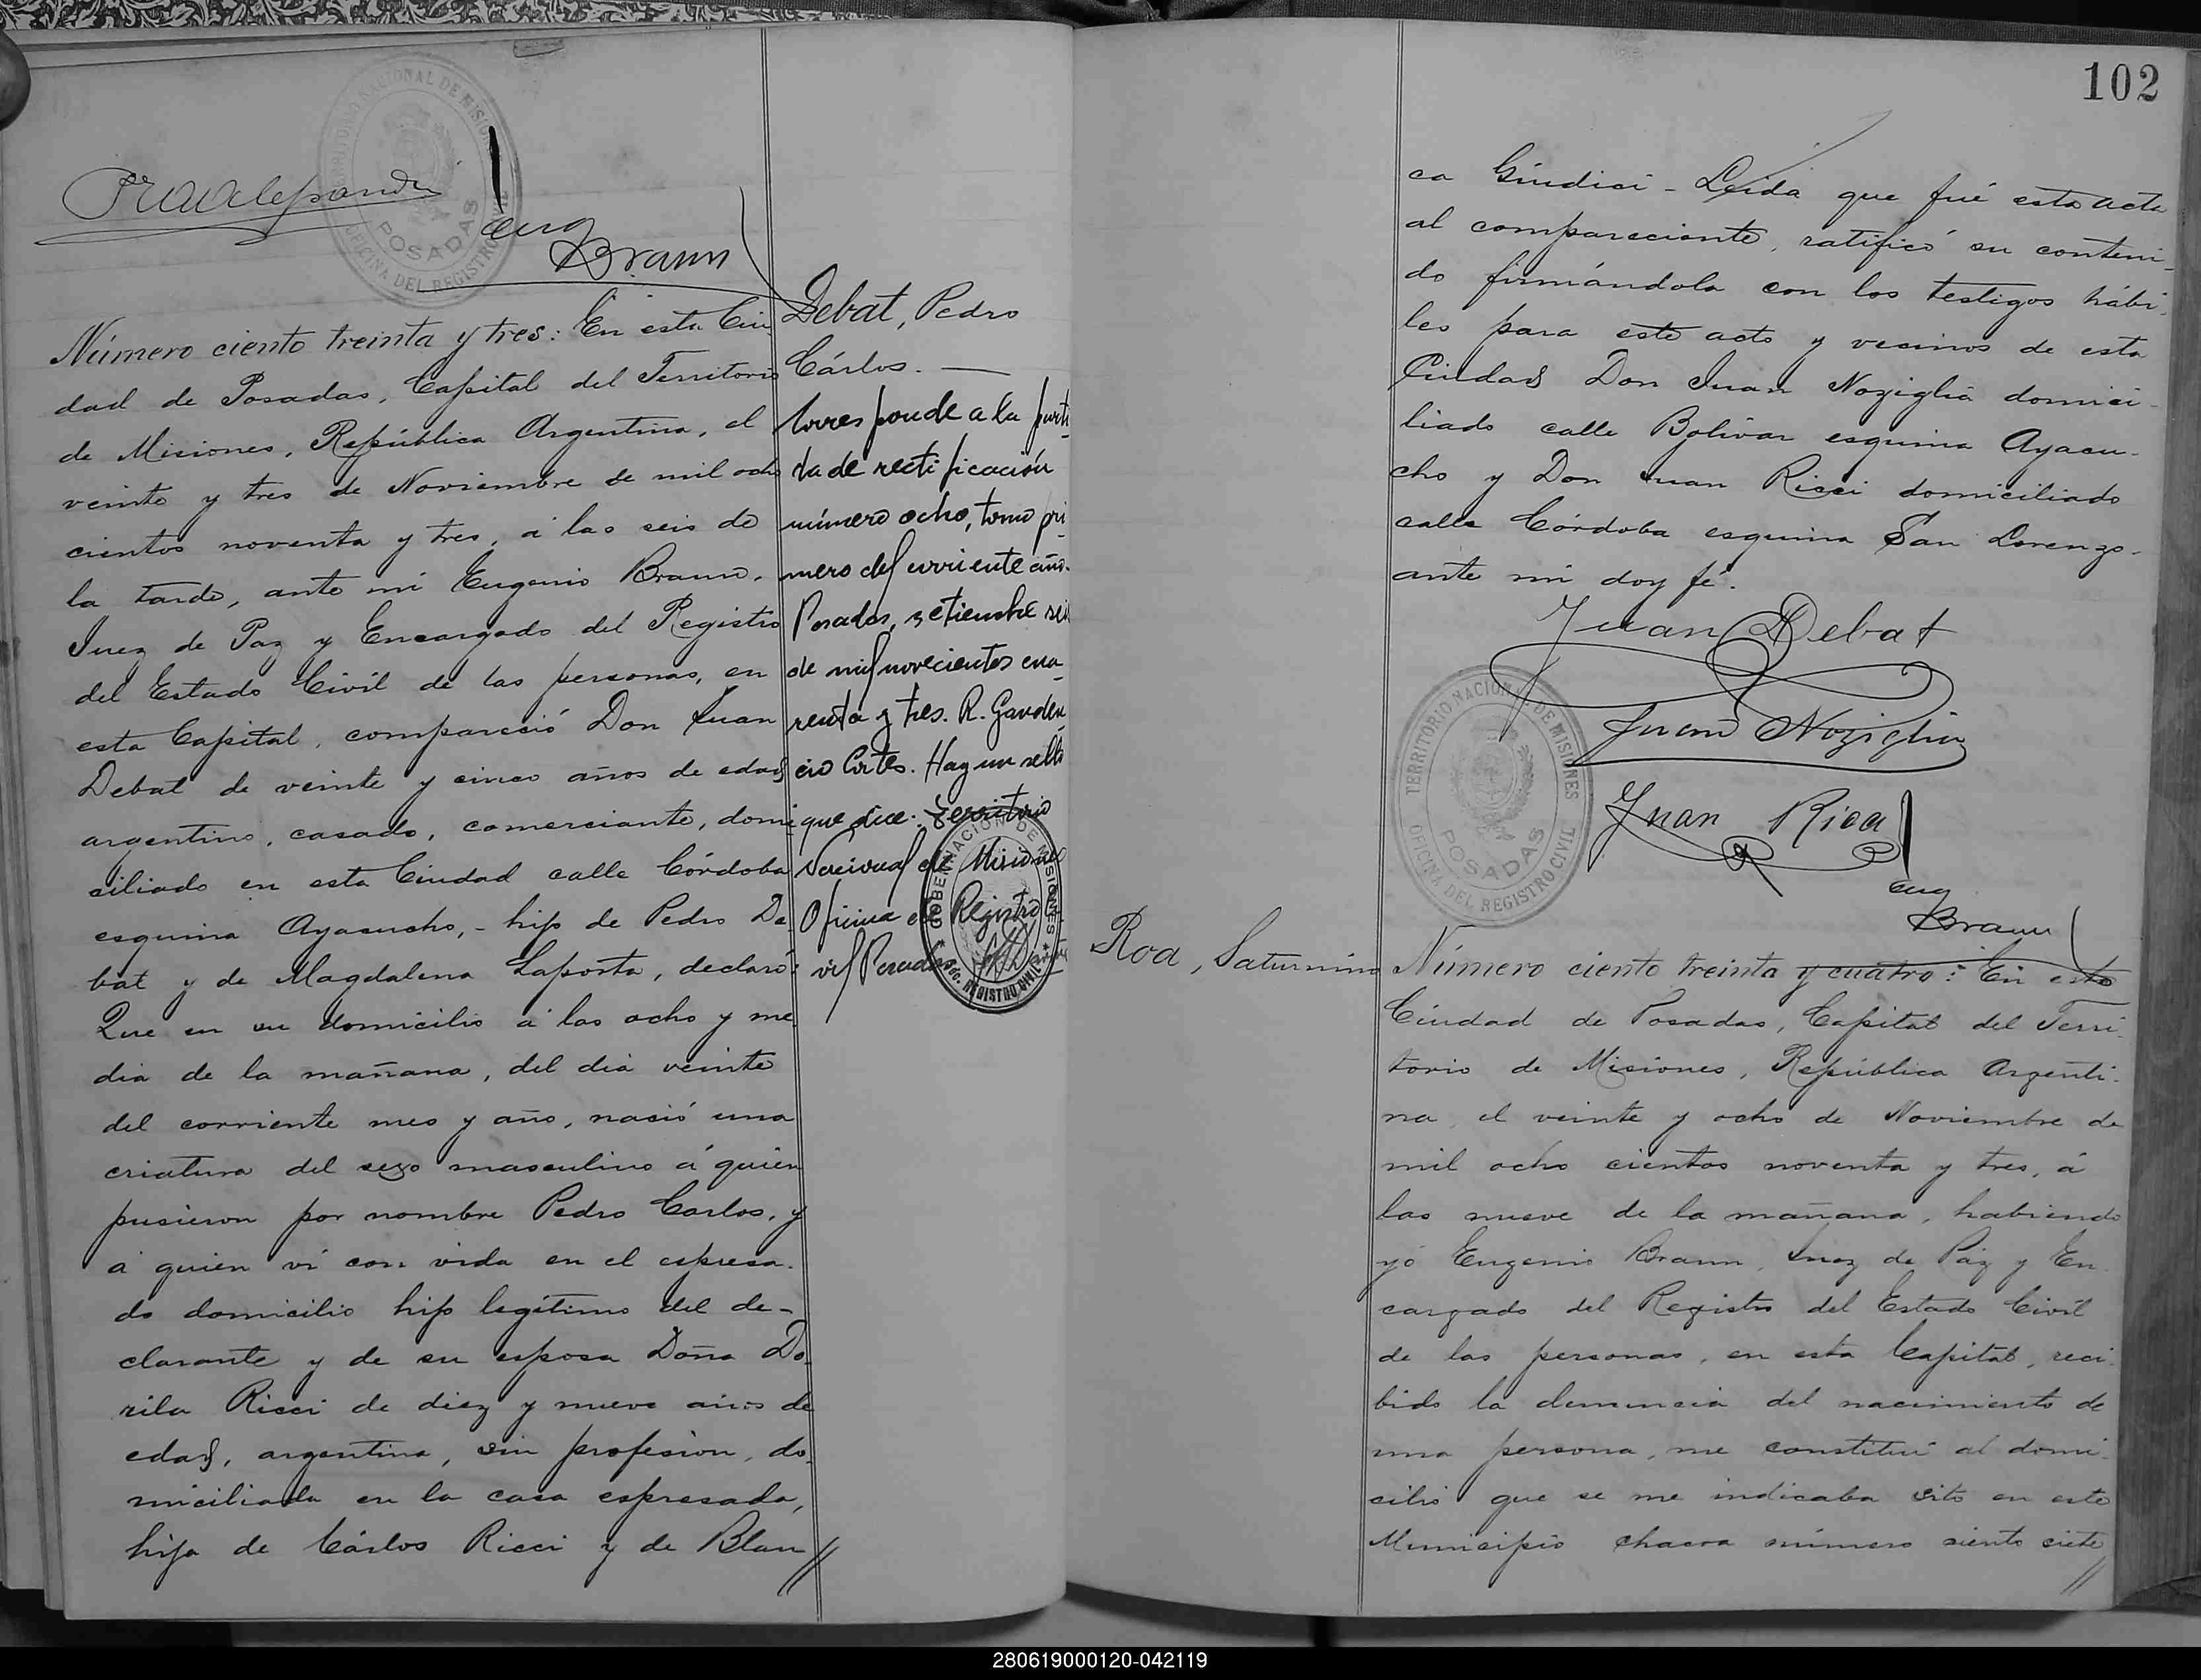 Eug
Braun
Número ciento treinta y tres: En esta Ciu
dad de Posadas, Capital del Territorio
de Misiones, República Argentina, el
veinte y tres de Noviembre de mil ocho
cientos noventa y tres, á las seis de
la tarde, ante mi Eugenio Braun,
Juez de Paz y Encargado del Registro
del Estado Civil de las personas, en
esta Capital, compareció Don Juan
Debat de veinte y cinco años de edad
argentino, casado, comerciante, domi
ciliado en esta Ciudad calle Córdoba
esquina Ayacucho, - hijo de Pedro De
bat y de Magdalena Laporta, declaró:
Que en su domicilio á las ocho y me
dia de la mañana, del dia veinte
del corriente mes y año, nació una
criatura del sexo masculino á quien
pusieron por nombre Pedro Carlos, y
á quien ví con vida en el espresa-
do domicilio hijo legítimo del de-
clarante y de su esposa Doña Do
rila Ricci de diez y nueve años de
edad, argentina, sin profesion, do
miciliada en la casa espresada,
hija de Cárlos Ricci y de Blan //
Debat, Pedro
Cárlos. —
Corresponde a la parti-
da de rectificación
número ocho, tomo pri-
mero del corriente año.
Posadas, setiembre seis
de mil novecientos cua-
renta y tres. R. Gauden
cio Cortes. Hay un sello
que dice: Territorio
Nacional de Misiones
Oficina del Registro
vil Posadas
GOBERNACION DE MISIONES
REGISTRO CIVIL
TERRITORIO NACIONAL DE MISIONES
POSADAS
OFICINA DEL REGISTRO CIVIL
102
ca Giudici - Leida que fué esta acta
al compareciente, ratificó su conteni-
do firmándola con los testigos hábi-
les para este acto y vecinos de esta
Ciudad Don Juan Noziglia domici-
liado calle Bolívar esquina Ayacu-
cho y Don Juan Ricci domiciliado
calle Córdoba esquina San Lorenzo-
ante mi doy fé.
Juan Debat
Juan Noziglia
Juan Ricci
Eug
Braun
TERRITORIO NACIONAL DE MISIONES
POSADAS
OFICINA DEL REGISTRO CIVIL
Roa, Saturnino
Número ciento treinta y cuatro: En esta
Ciudad de Posadas, Capital del Terri-
torio de Misiones, República Argenti-
na, el veinte y ocho de Noviembre de
mil ocho cientos noventa y tres, á
las nueve de la mañana, habiendo
yó Eugenio Braun, Juez de Páz y En
cargado del Registro del Estado Civil
de las personas, en esta Capital, reci-
bido la denuncia del nacimiento de
una persona, me constituí al domi-
cilio que se me indicaba sito en este
Municipio chacra número siento siete //
280619000120-042119